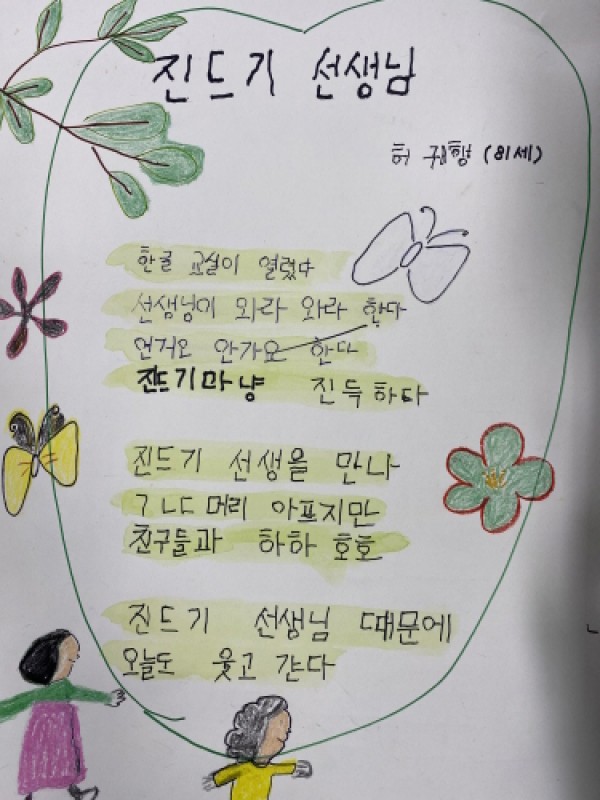 진드기 선생님
허 궤형 (81세)
한글 교실이 열렸다
선생님이 와라 와라 한다
안가요 한다
진드기마냥 진득하다
진드기 선생을 만나
ㄱㄴㄷ 머리 아프지만
친구들과 하하 호호
진드기 선생님 때문에
오늘도 웃고 간다